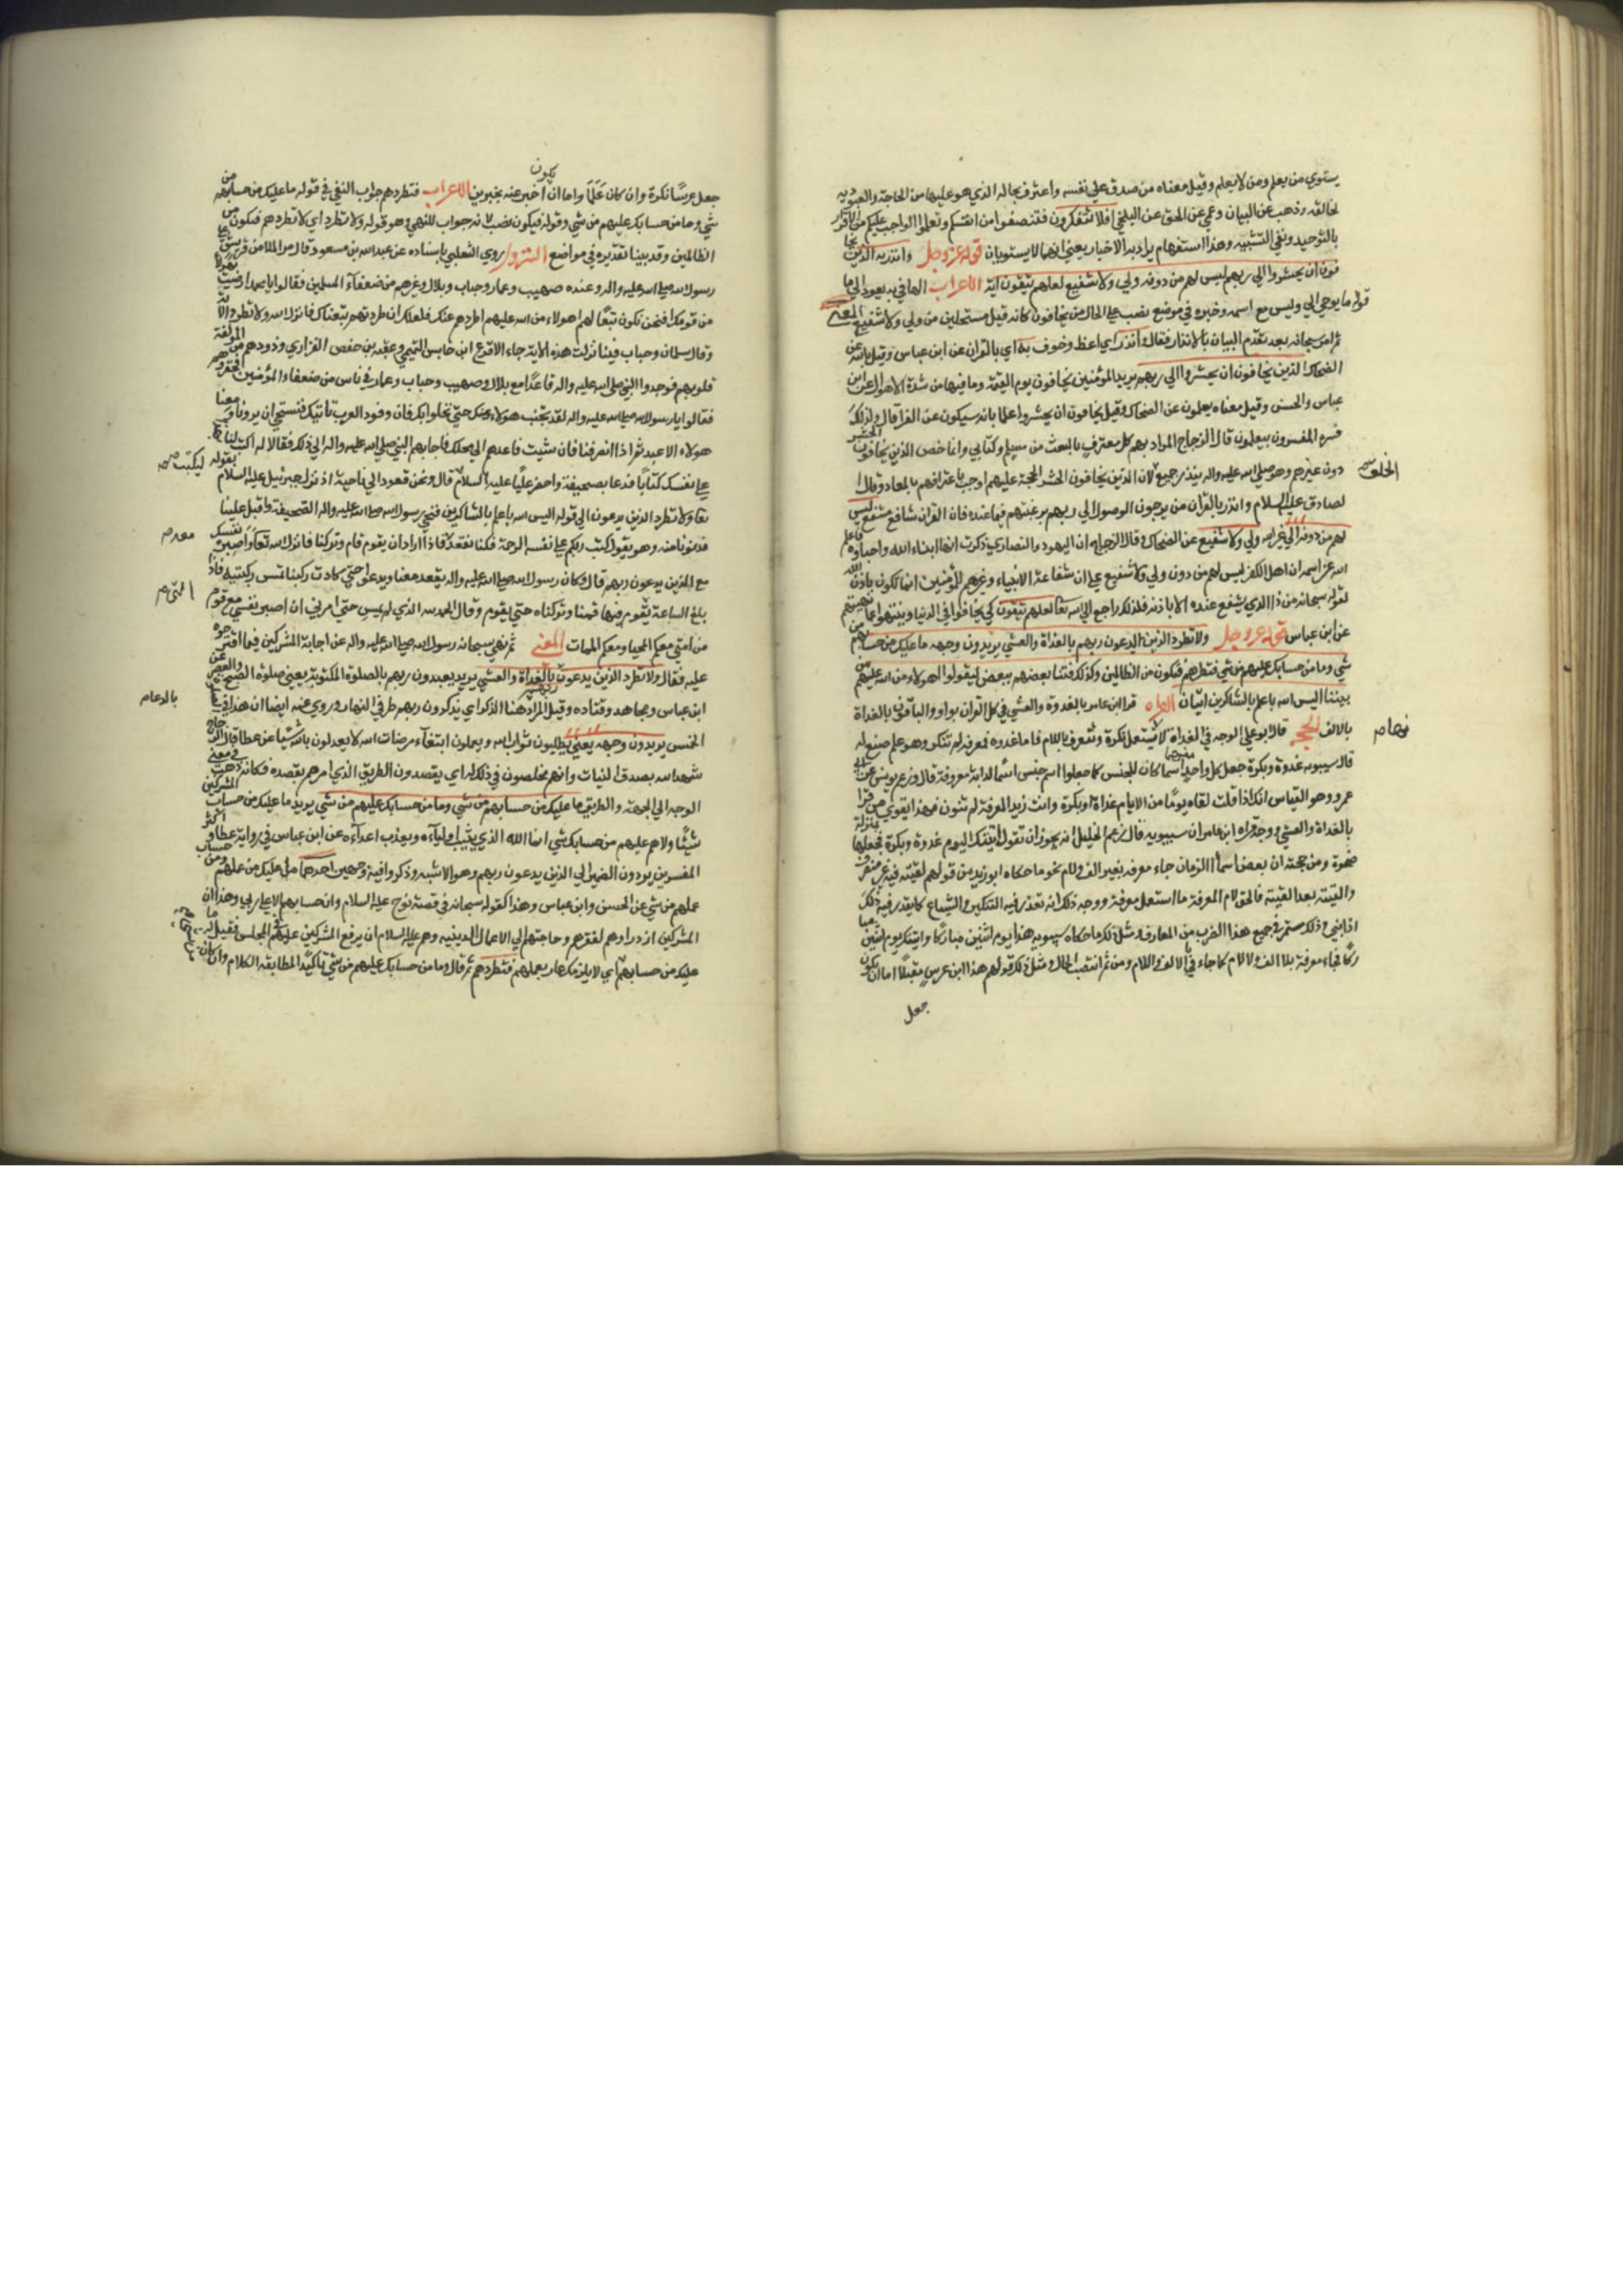 يستوي من يعلم ومن لا يعلم وقيل معناه من صدق علي نفسه واعترف بحاله الذي هو عليها من الحاجة والعبودية
لخالقه وذهب عن البيان وعمي عن الحق عن البلخي افلا تتفكرون فتنصفوا من انفسكم وتعلموا الواجب عليكم من الاقرار
بالتوحيد ونفي التشبيه وهذا استفهام يراد به الاخبار يعني انهما لا يستويان قوله عز وجل وانذر به الذين يخا
فون ان يحشروا الي ربهم ليس لهم من دونه ولي ولا شفيع لعلهم يتقون اية الاعراب الها في به يعود الي ما
قوله ما يوحي الي وليس مع اسمه وخبره في موضع نصب علي الحال من يخافون كانه قيل متخلين من ولي ولا شفيع المعني
ثم امر سبحانه بعد تقدم البيان بالانذار فقال وانذر اي اعظ وخوف به اي بالقران عن ابن عباس وقيل بالله عن
الضحاك الذين يخافون ان يحشروا الي ربهم يريد المؤمنين يخافون يوم القيمة وما فيها من شدة الاهوال عن ابن
عباس والحسن وقيل معناه يعلمون عن الضحاك وقيل يخافون ان يحشروا علما بانه سيكون عن الفرا قال ولذلك
فسره المفسرون بيعلمون قال الزجاج المراد بهم كل معترف بالبعث من مسلم وكتابي وانما خص الذين يخافون الحشر
دون غيرهم وهو صلي الله عليه واله ينذر جميع لان الذين يخافون الحشر الحجة عليهم اوجب باعترافهم بالمعاد وقال ا
الخلق صح
لصادق عليه السلام وانذر بالقران من يرجون الوصول الي ربهم برغبتهم فيما عنده فان القران شافع مشفع ليس
لهم من دونه اي غير الله ولي ولا شفيع عن الضحاك وقال الزجاج ان اليهود والنصاري ذكرت انها ابناء الله واحباؤه فاعلم
الله عز اسمه ان اهل الكفر ليس لهم من دون ولي ولا شفيع علي ان شفاعة الانبياء وغيرهم للمؤمنين انما تكون باذن الله
لقوله سبحانه من ذا الذي يشفع عنده الا باذنه فلذلك راجع الي الله تعا لعلهم يتقون كي يخافوا في الدنيا وينتهوا عما نهيتهم
عن ابن عباس قوله عز وجل ولا تطرد الذين يدعون ربهم بالغداة والعشي يريدون وجهه ما عليك من حسابهم من
شي وما من حسابك عليهم من شي فتطردهم فتكون من الظالمين وكذلك فتنا بعضهم ببعض ليقولوا اهولاء من الله عليهم من
بيننا اليس الله باعلم بالشاكرين ايتان القراه قرا ابن عامر بالغدوة والعشي في كل القران بواو والباقون بالغداة
بالالف الحجه قال ابو علي الوجه في الغداة لا تستعمل نكرة وتتعرف باللام فاما غدوه فمعرفه لم تنكر وهو علم صنع له
قال سيبويه غدوة وبكرة جعل كل واحد منهما اسما كان للجنس كما جعلوا ام حبين اسما لدابة معروفة قال وزعم يونس عن ابي
عمرو وهو القياس انك اذا قلت لقاه يوما من الايام غداة او بكرة وانت تريد المعرفة لم تنون فهذا يقوي من قرا
بالغداة والعشي ووجه قراه ابن عامر ان سيبويه قال زعم الخليل انه يجوز ان تقول اتيتك اليوم غدوة وبكرة فجعلها بمنزلة
ضحوة ومن حجته ان بعض اسما الزمان جاء معرفه بغير الف ولام نحو ما حكاه ابو زيد من قولهم لقيته فينة غير منصرف
والفينة بعد الفينة فالحق لام المعرفة ما استعمل معرفة ووجه ذلك انه تقدر فيه التنكير والشياع كما يقدر فيه ذلك
اذا ثني وذلك مستمر في جميع هذا الضرب من المعارف ومثل ذلك ما حكاه سيبويه هذا يوم اثنين مباركا واتيتك يوم اثنين مبا
ركا فجاء معرفة بلا الف ولا لام كما جاء في الالف واللام ومن ثم انتصب الحال ومثل ذلك قولهم هذا ابن عرس مقبلا اما ان يكون
جعل
يكون
جعل عرسا نكرة وان كان علما واما ان اخبر عنه بخبرين الاعراب فتطردهم جواب النفي في قوله ما عليك من حسابهم من
شي وما من حسابك عليهم من شي وقوله فتكون نصب لانه جواب للنهي وهو قوله ولا تطرد اي لا تطردهم فتكون من
الظالمين وقد بينا تقديره في مواضع النزول روي الثعلبي باسناده عن عبد الله بن مسعود قال مر الملا من قريش علي
رسول الله صلي الله عليه واله وعنده صهيب وعمار وخباب وبلال وغيرهم من ضعفاء المسلمين فقالوا يا محمد ارضيت بهولا
من قومك افنحن نكون تبعا لهم اهولاء من الله عليهم اطردهم عنك فلعلك ان طردتهم تبعناك فانزل الله ولا تطرد الاية
وقال سلمان وخباب فينا نزلت هذه الاية جاء الاقرع ابن حابس التميمي وعيينه بن حفص الفزاري وذووهم من المؤلفة
قلوبهم فوجدوا النبي صلي الله عليه واله قاعدا مع بلال وصهيب وخباب وعمار في ناس من ضعفاء المؤمنين فحقروهم
فقالوا يا رسول الله صلي الله عليه واله لقد نجيت هولاء عنك حتي نخلوا بك فان وفود العرب تاتيك فنستحي ان يرونا مع
هولاء الاعبد ثم اذا انصرفنا فان شيت فاعدهم الي مجلسك فاجابهم النبي صلي الله عليه واله الي ذلك فقالا له اكتب لنا بهذا
علي نفسك كتابا فدعا بصحيفة واحضر عليا عليه السلام قال ونحن قعود الي ناحية اذ نزل جبرئيل عليه السلام بقوله
ليكتب صح
تعا ولا تطرد الذين يدعون الي قوله اليس الله باعلم بالشاكرين فنحي رسول الله صلي الله عليه واله الصحيفة واقبل علينا
فدنونا منه وهو يقول كتب ربكم علي نفسه الرحمة فكنا نقعد فاذا اراد ان يقوم قام وتركنا فانزل الله تعا واصبر نفسك
معه صح
مع الذين يدعون ربهم قال وكان رسول الله صلي الله عليه واله يقعد معنا ويدعوا حتي كادت ركبنا تمس ركبتيه فاذا
بلغ الساعة يقوم فيها قمنا وتركناه حتي يقوم وقال الحمد لله الذي لم يمتني حتي امرني ان اصبر نفسي مع قوم
التي صح
من امتي معكم المحيا ومعكم الممات المعني ثم نهي سبحانه رسول الله صلي الله عليه واله عن اجابة المشركين فيما اقترحوه
عليه فقال ولا تطرد الذين يدعون ربهم بالغداة والعشي يريد يعبدون ربهم بالصلوة المكتوبة يعني صلوة الصبح والعصر عن
ابن عباس ومجاهد وقتاده وقيل المراد هنا الذكر اي يذكرون ربهم طرفي النهار وروي عنه ايضا ان هذا في
بالدعا صح
الخمس يريدون وجهه يعني يطلبون ثواب الله ويعملون ابتغاء مرضات الله لا يعدلون بالله شيا عن عطا قال الزجاج
شهد الله بصدق النيات وانهم مخلصون في ذلك له اي يقصدون الطريق الذي امرهم بقصده فكانه ذهب في معني
الوجه الي الجهة والطريق ما عليك من حسابهم من شي وما من حسابك عليهم من شي يريد ما عليك من حساب المشركين
شيئا ولا هم عليهم من حسابك شي انما الله الذي يثيب اولياءه ويعذب اعداءه عن ابن عباس في رواية عطا واكثر
المفسرين يردون الضمير الي الذين يدعون ربهم وهو الاشبه وذكروا فيه وجهين احدهما ما عليك من عملهم ومن حساب
عملهم من شي عن الحسن وابن عباس وهذا كقوله سبحانه في قصة نوح عليه السلام وان حسابهم الا علي ربي وهذا ان
المشركين ازدروهم لفقرهم وحاجتهم الي الاعمال الدينيه وهم عليه السلام ان يرفع المشركين عليهم في المجلس فقيل له ما
عليك من حسابهم اي لا يلزمك عار بعملهم فتطردهم ثم قال وما من حسابك عليهم من شي تاكيدا لمطابقه الكلام وان كان